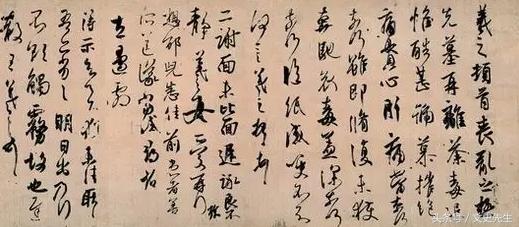 羲之頓首喪亂之極
先墓再離荼毒追
惟酷甚號慕摧絕
痛貫心肝痛當奈何
奈何雖即脩復未獲
奔馳哀毒益深奈何
奈何臨紙感哽不知
何言羲之頓首頓首
二謝面未比面遲詠良
靜羲之女愛再拜
想邵兒悉佳前患者善
所送議當試尋省
左邊劇
得示知足下猶未佳耿耿
吾亦劣劣明日出乃行
不欲觸霧故也遲
散王羲之頓首
头条号/文史先生